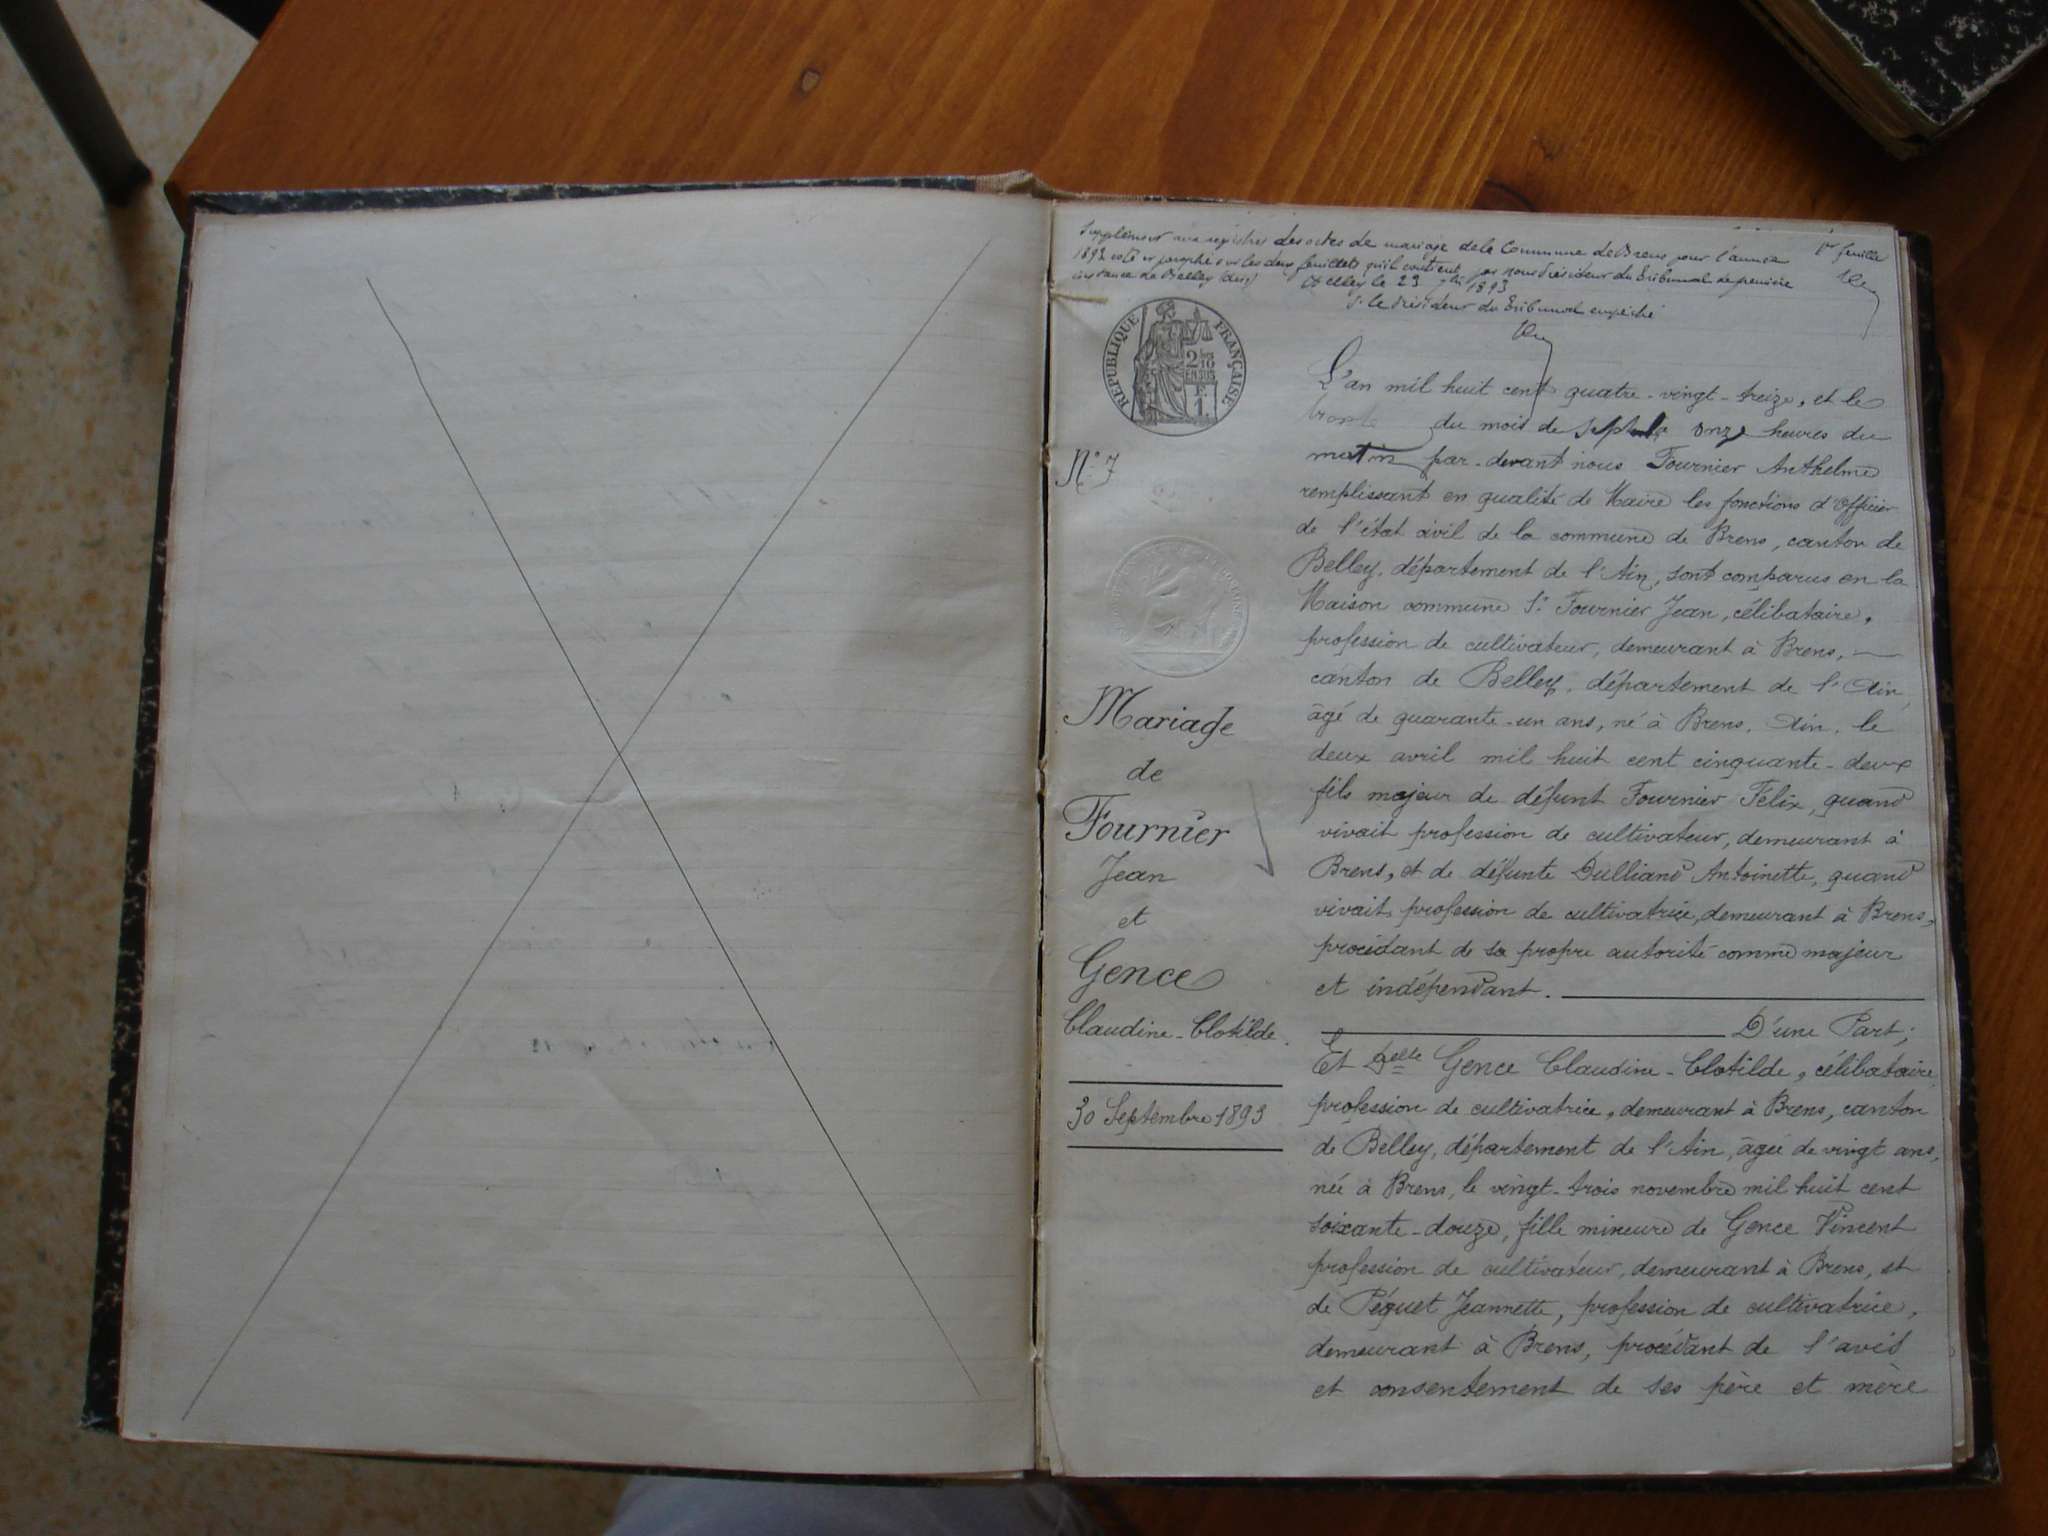 Supplément aux registres des actes de mariage de la Commune de Brens pour l'année
1893 coté et paraphé sur les deux feuillets qu'il contient par nous Président du Tribunal de première
instance de Belley (Ain)
Belley le 29 7bre 1893
p. le Président du Tribunal empêché
1er feuille
RÉPUBLIQUE FRANÇAISE
2/10
EN SUS
F.
1.
N° 7
Mariage
de
Fournier
Jean
et
Gence
Claudine-Clotilde.
30 Septembre 1893
L'an mil huit cent quatre-vingt-treize, et le
trente du mois de onze heures du
matin par-devant nous Fournier Anthelme
remplissant en qualité de Maire les fonctions d'Officier
de l'état civil de la commune de Brens, canton de
Belley, département de l'Ain, sont comparus en la
Maison commune Sr Fournier Jean, célibataire,
profession de cultivateur, demeurant à Brens, —
canton de Belley, département de l'Ain
âgé de quarante-un ans, né à Brens, Ain, le
deux avril mil huit cent cinquante-deux
fils majeur de défunt Fournier Félix, quand
vivait profession de cultivateur, demeurant à
Brens, et de défunte Dulliand Antoinette, quand
vivait profession de cultivatrice, demeurant à Brens,
procédant de sa propre autorité comme majeur
et indépendant.
D'une Part;
Et Delle Gence Claudine-Clotilde, célibataire,
profession de cultivatrice, demeurant à Brens, canton
de Belley, département de l'Ain, âgée de vingt ans,
née à Brens, le vingt-trois novembre mil huit cent
soixante-douze, fille mineure de Gence Vincent
profession de cultivateur, demeurant à Brens, et
de Péquet Jeannette, profession de cultivatrice,
demeurant à Brens, procédant de l'avis
et consentement de ses père et mère